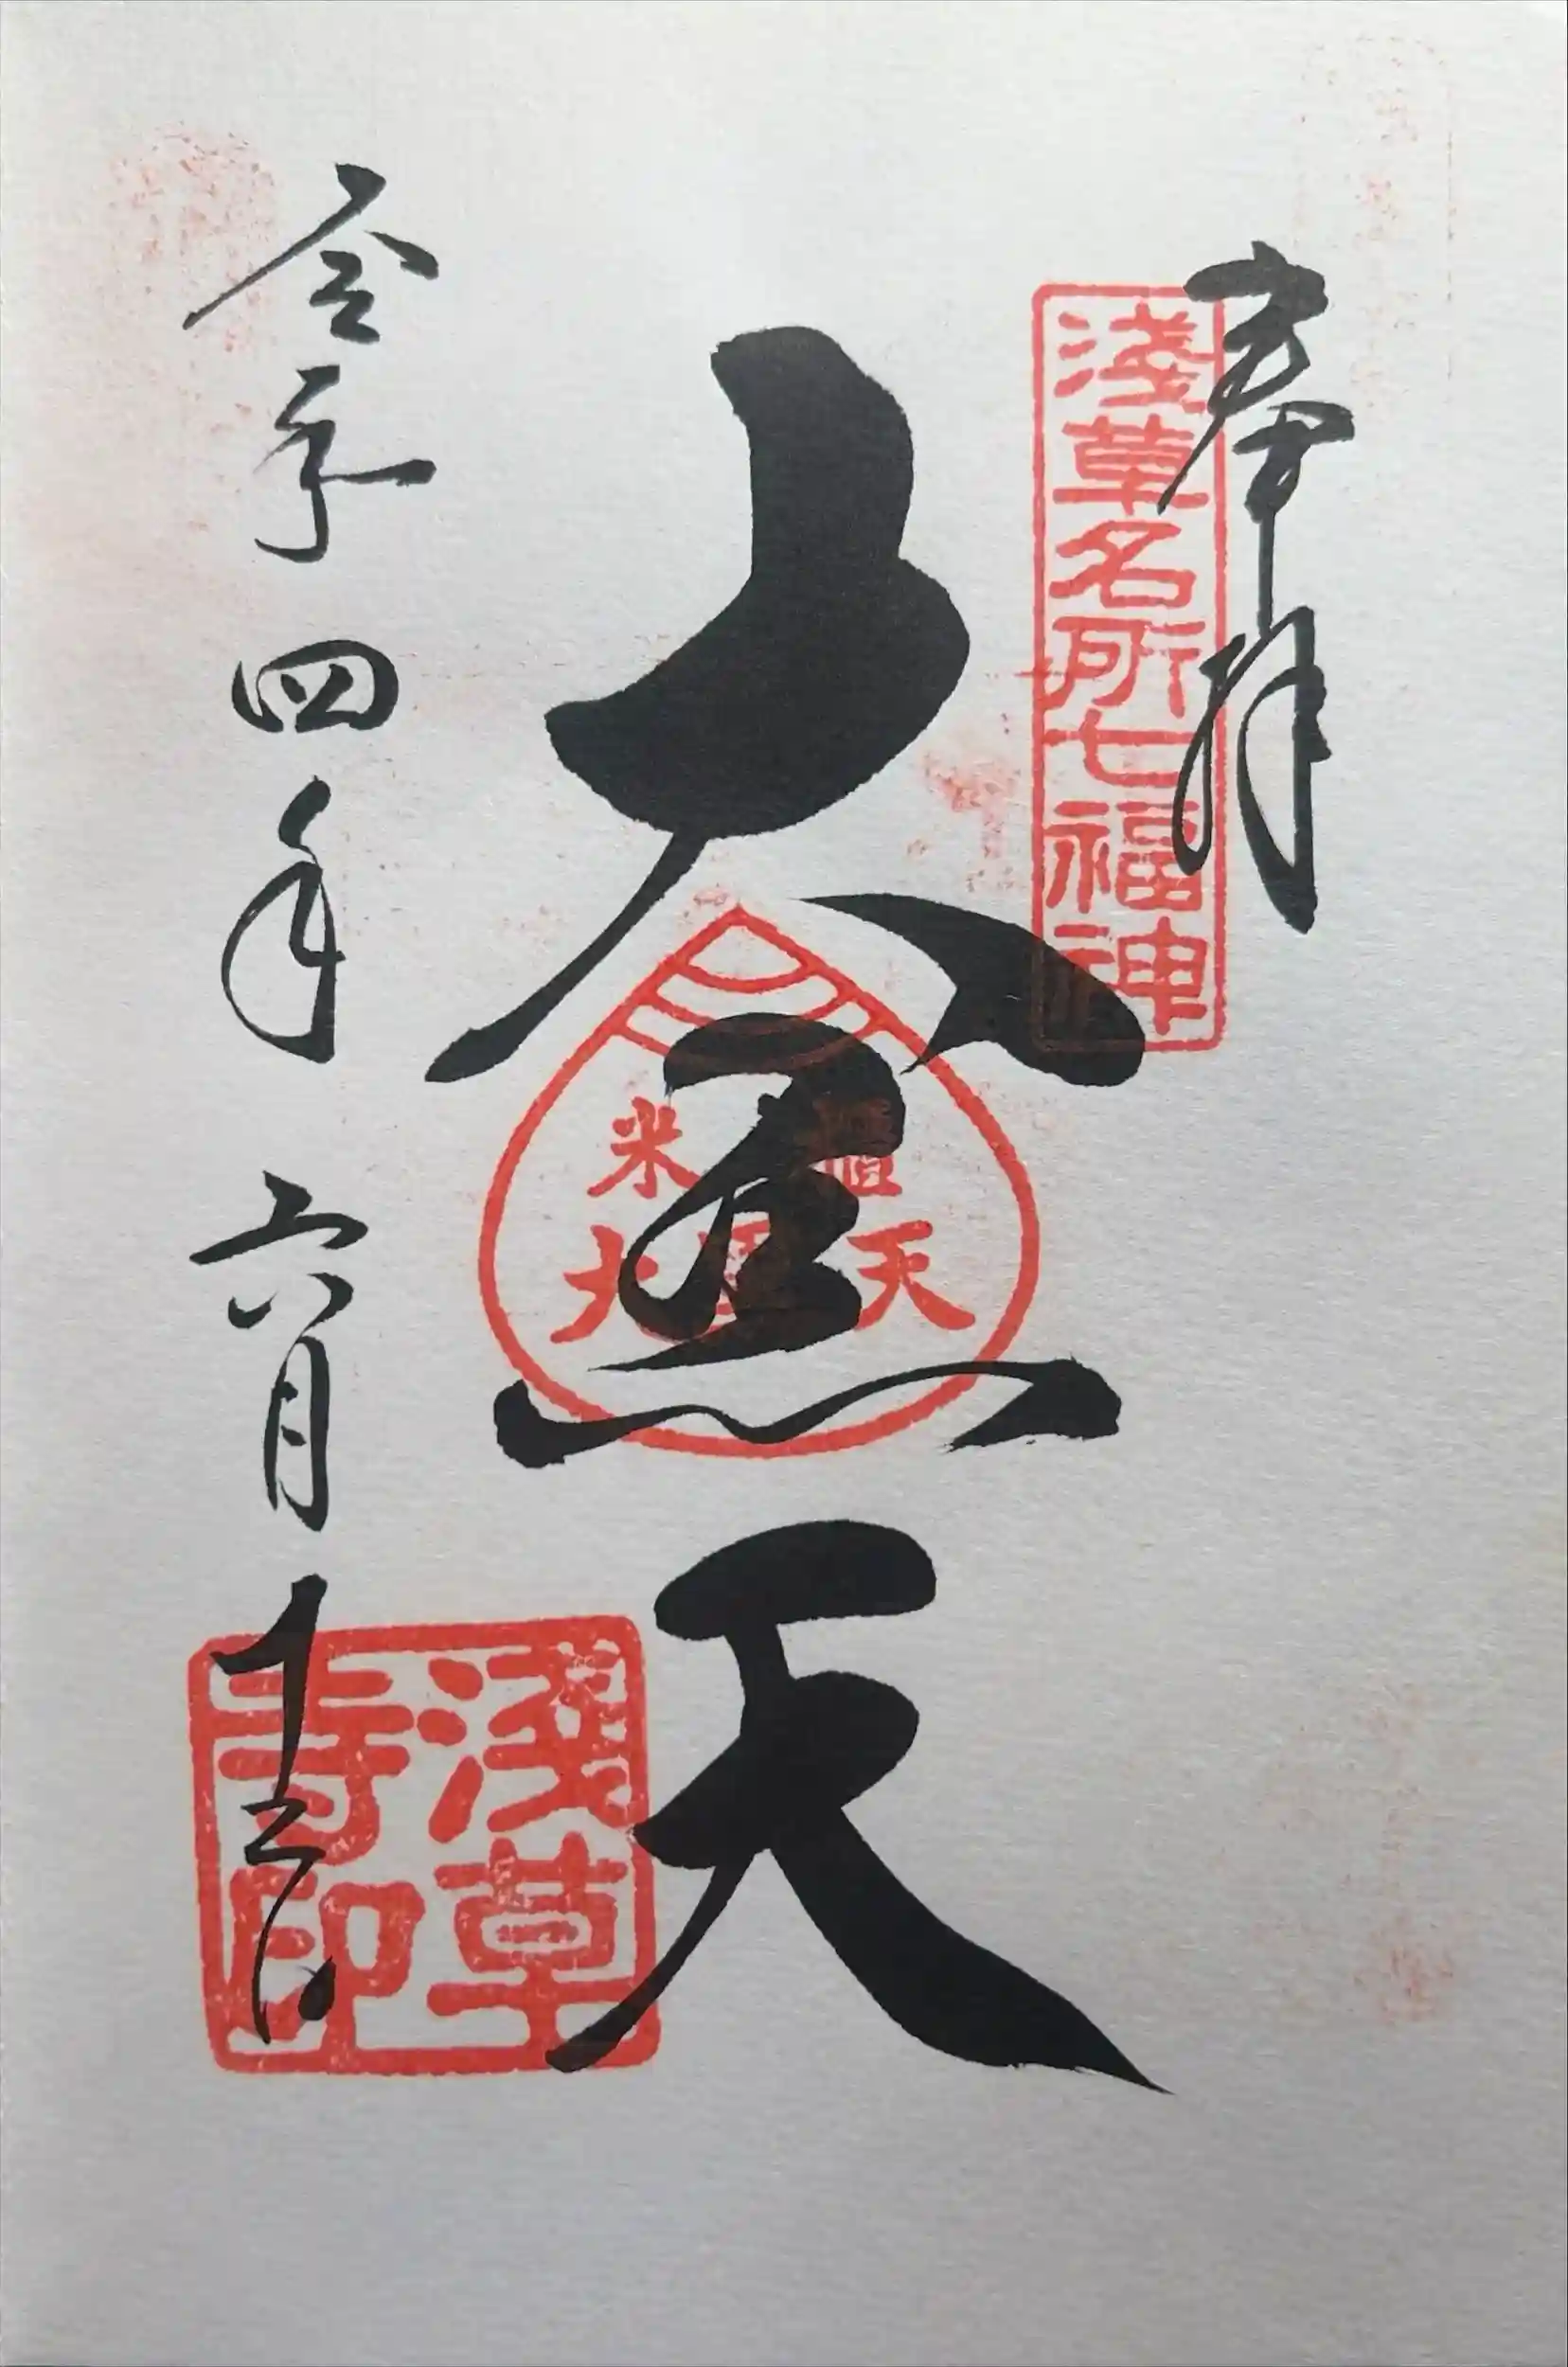 奉拝
浅草名所七福神
大黒天
米櫃
大黒天
令和四年六月十三日
浅草
寺印